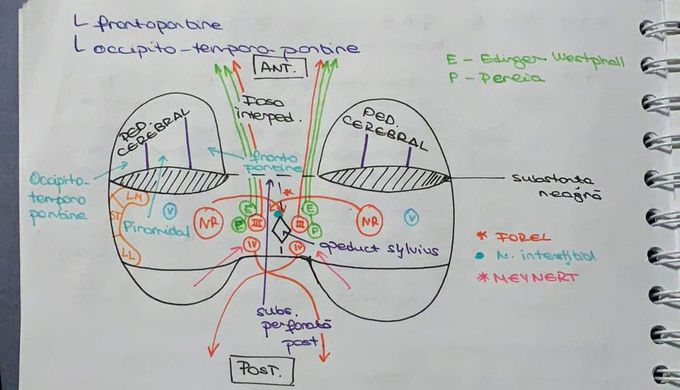 L frontopontine
L occipito-temporo-pontine
E - Edinger Westphall
P - Perlia
ANT.
Fosa
interped.
PED.
CEREBRAL
PED.
CEREBRAL
fronto
pontine
Occipito-
temporo
pontine
Piramidal
substanta
neagră
LM
ST
LL
V
NR
E
P
III
IV
*
III
IV
E
P
NR
V
apeduct sylvius
* FOREL
N. interstițial
* MEYNERT
subs.
perforată
post
POST.